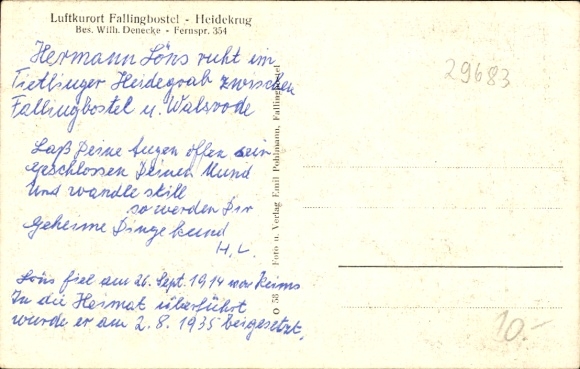 Luftkurort Fallingbostel - Heidekrug
Bes. Wilh. Denecke - Fernspr. 354
Hermann Löns ruht im
Tietlinger Heidegrab zwischen
Fallingbostel u. Walsrode
Laß Deine Augen offen sein
geschlossen Deinen Mund
Und wandle still
so werden Dir
geheime Dinge kund
H. L.
Löns fiel am 26. Sept. 1914 vor Reims
In die Heimat überführt
wurde er am 2. 8. 1935 beigesetzt.
O 58 Foto u. Verlag Emil Pohlmann, Fallingbostel
29683
10.-